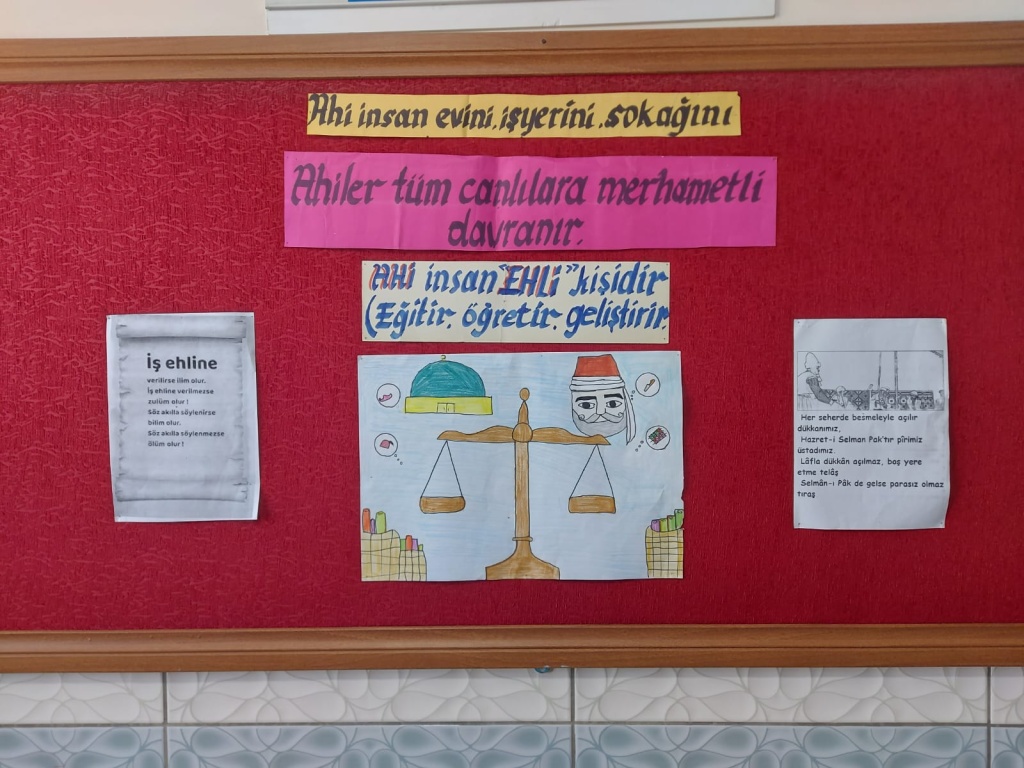 Ahi insan evini, işyerini, sokağını
Ahiler tüm canlılara merhametli
davranır.
AHİ insan "EHLİ" kişidir
(Eğitir, öğretir, geliştirir.
İş ehline
verilirse ilim olur.
İş ehline verilmezse
zulüm olur!
Söz akılla söylenirse
bilim olur.
Söz akılla söylenmezse
ölüm olur!
Her seherde besmeleyle açılır
dükkanımız,
Hazret-i Selman Pak'tır pîrimiz
üstadımız.
Lâfla dükkân açılmaz, boş yere
etme telâş
Selmân-ı Pâk de gelse parasız olmaz
tıraş